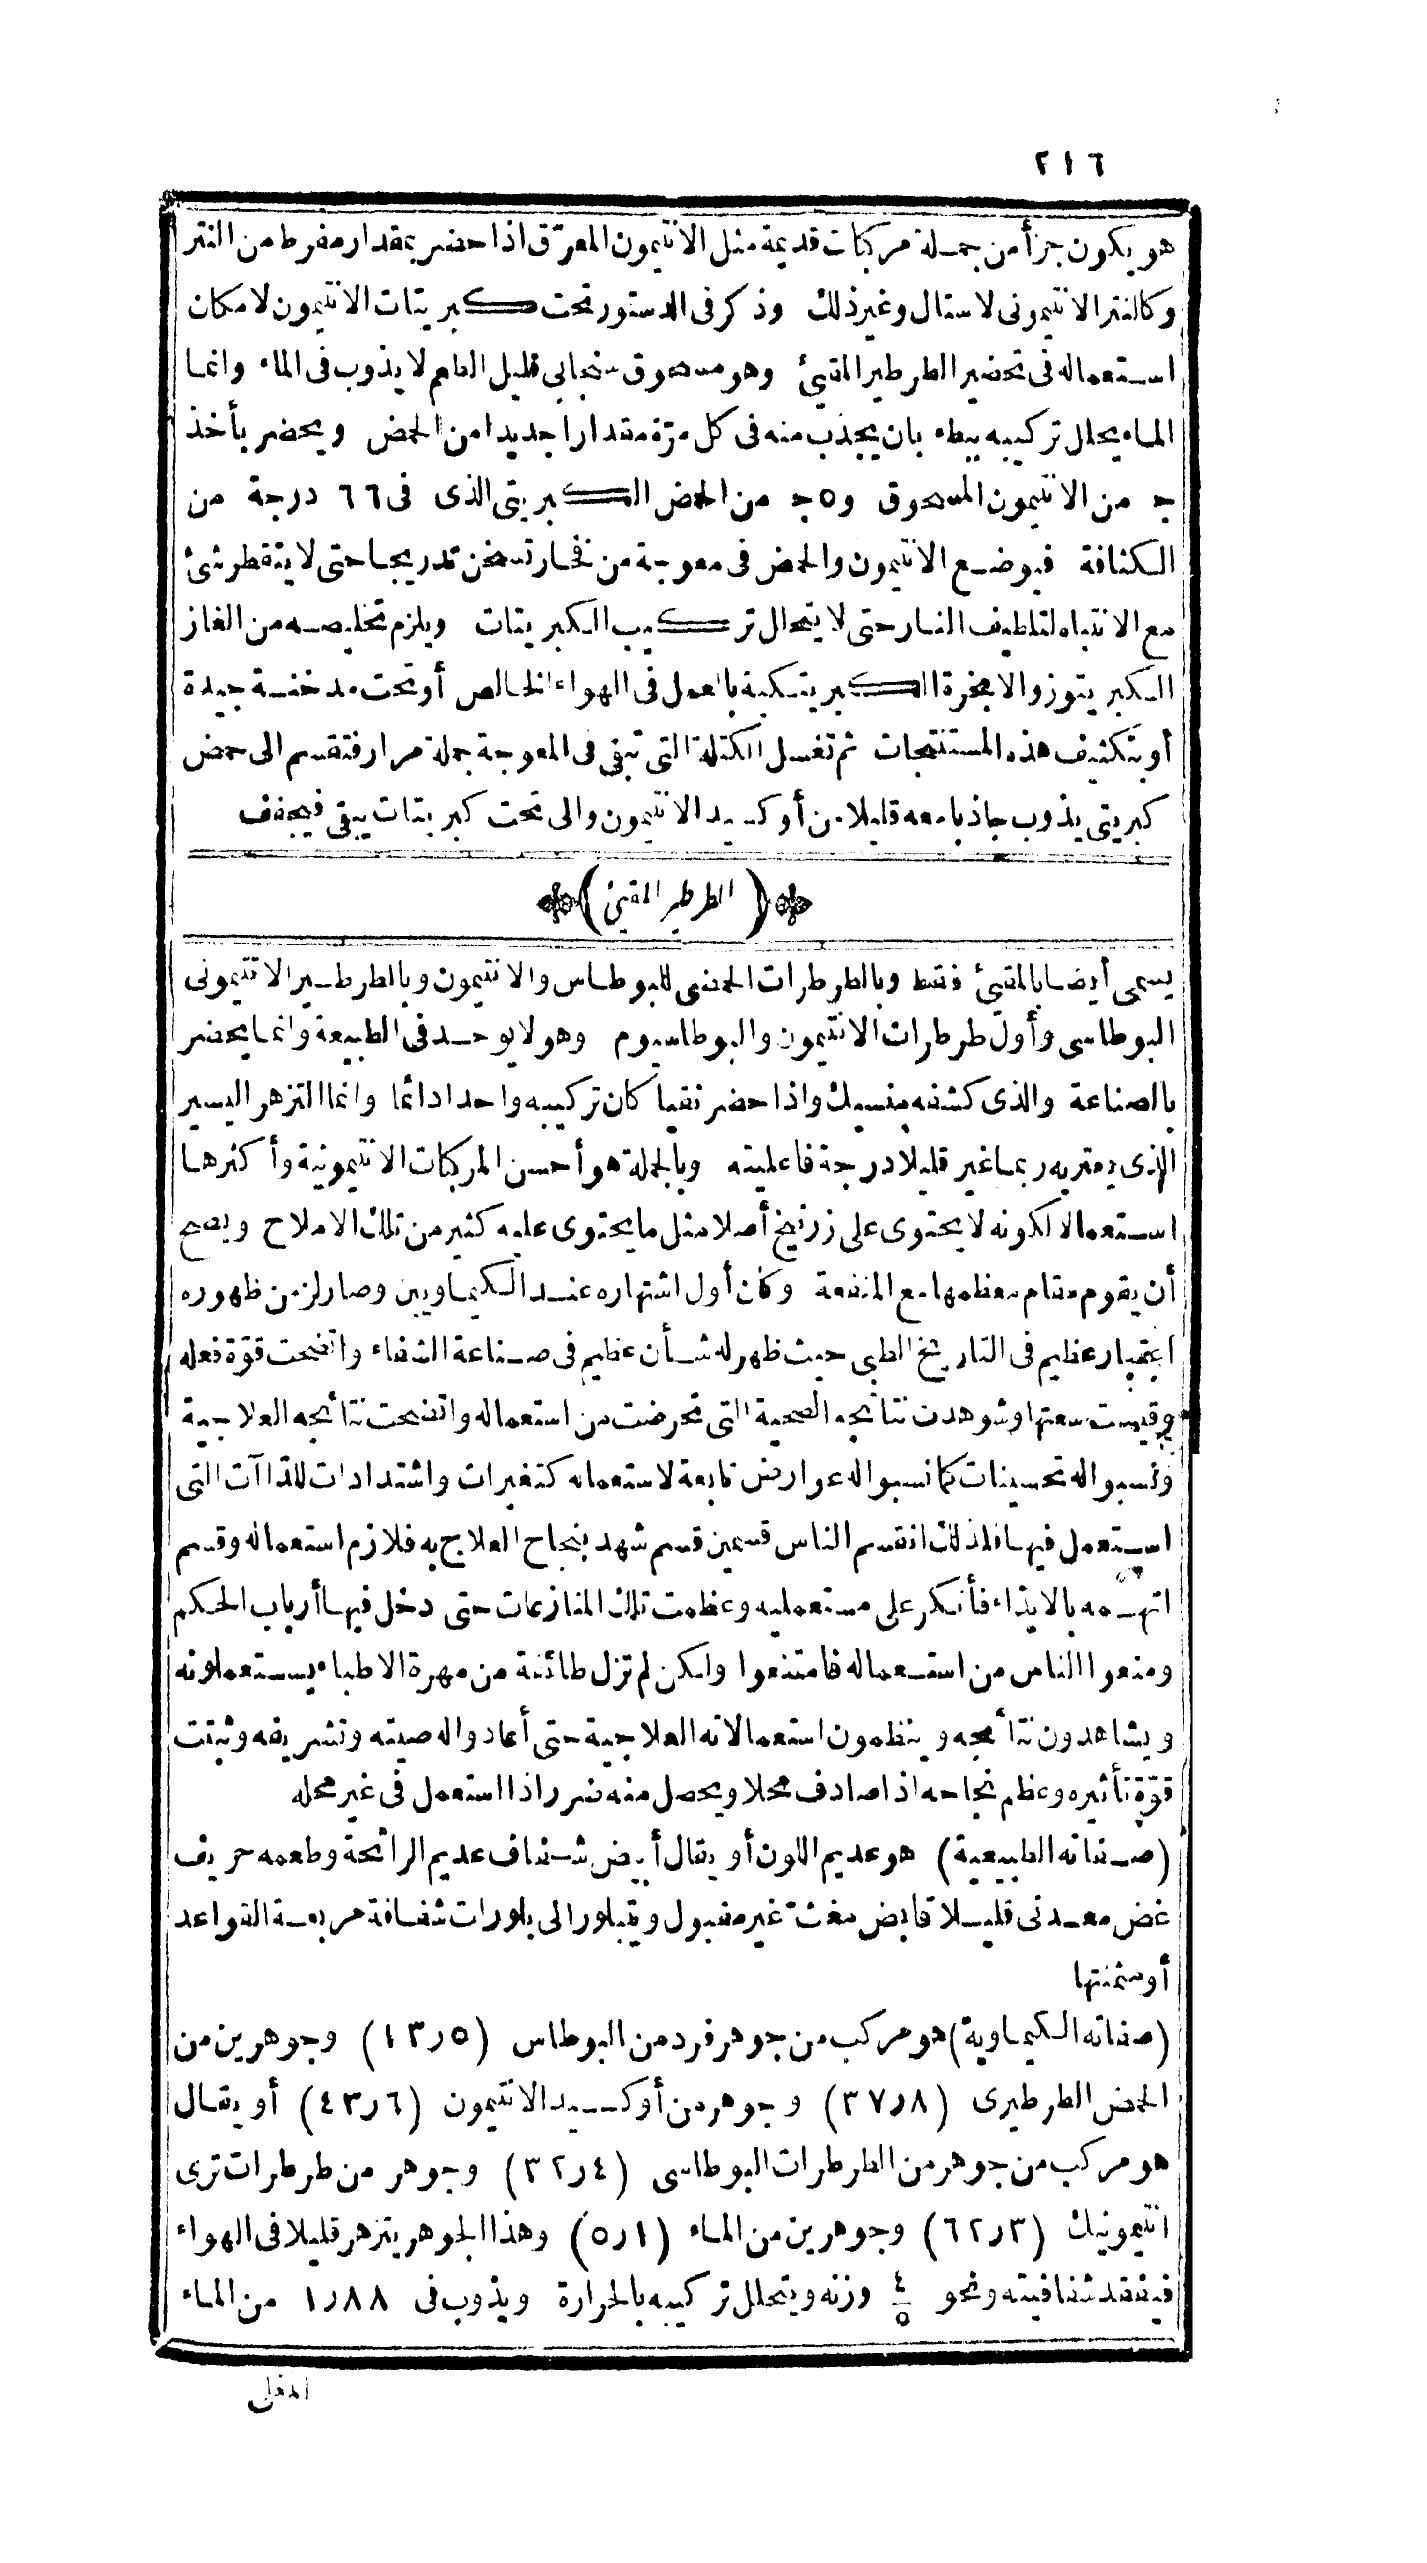 ٢١٦
هو يكون جزأ من جملة مركبات قديمة مثل الانتيمون المعرّق اذا حضر بمقدار مفرط من النتر
وكالنتر الانتيمونى لاستال وغير ذلك وذكر فى الدستور تحت كبريتات الانتيمون لامكان
استعماله فى تحضير الطرطير المقيئ وهو مسحوق سنجابى قليل الطعم لا يذوب فى الماء وانما
الماء يحلل تركيبه ببطء بان يجذب منه فى كل مرّة مقدارا جديدا من الحمض ويحضر بأخذ
ج من الانتيمون المسحوق و٥ج من الحمض الكبريتى الذى فى ٦٦ درجة من
الكثافة فيوضع الانتيمون والحمض فى معوجة من فخار تسخن تدريجا حتى لا يتقطر شئ
مع الانتباه لتلطيف النار حتى لا يتحال تركيب الكبريتات ويلزم تخليصه من الغاز
الكبريتوز والابخرة الكبريتية بالعمل فى الهواء الخالص أو تحت مدخنة جيدة
أو بتكثيف هذه المستنتجات ثم تغسل الكتلة التى تبقى فى المعوجة جملة مرار فتقسم الى حمض
كبريتى يذوب جاذبا معه قليلا من أوكسيد الانتيمون والى تحت كبريتات يبقى فيجفف
(الطرطير المقيئ)
يسمى أيضا بالمقيئ فقط وبالطرطرات الحمضى للبوطاس والانتيمون وبالطرطير الانتيمونى
البوطاسى وأول طرطرات الانتيمون والبوطاسيوم وهو لا يوجد فى الطبيعة وانما يحضر
بالصناعة والذى كشفه منسيك واذا حضر نقيا كان تركيبه واحدا دائما وانما التزهر اليسير
الذى يعتريه ربما غير قليلا درجة فاعليته وبالجملة هو أحسن المركبات الانتيمونية وأكثرها
استعمالا لكونه لا يحتوى على زرنيخ أصلا مثل ما يحتوى عليه كثير من تلك الاملاح ويصح
أن يقوم مقام معظمها مع المنفعة وكان أول اشتهاره عند الكيماويين وصار لزمن ظهوره
اعتبار عظيم فى التاريخ الطبى حيث ظهر له شأن عظيم فى صناعة الشفاء واتضحت قوّة فعله
وقيست سعتها وشوهدت نتائجه الصحية التى تحرضت من استعماله واتضحت نتائجه العلاجية
ونسبوا له تحسينات كما نسبوا له عوارض تابعة لاستعماله كتغيرات واشتدادات للداآت التى
استعمل فيها فلذلك انقسم الناس قسمين قسم شهد بنجاح العلاج به فلازم استعماله وقسم
اتهمه بالايذاء فأنكر على مستعمليه وعظمت تلك المنازعات حتى دخل فيها أرباب الحكم
ومنعوا الناس من استعماله فامتنعوا ولكن لم تزل طائفة من مهرة الاطباء يستعملونه
ويشاهدون نتائجه وينظمون استعمالاته العلاجية حتى أعادوا له صيته وتشريفه وثبتت
قوّة تأثيره وعظم نجاحه اذا صادف محلا ويحصل منه ضرر اذا استعمل فى غير محله
(صفاته الطبيعية) هو عديم اللون أو يقال أبيض شفاف عديم الرائحة وطعمه حريف
غض معدنى قليلا قابض مغث غير مقبول ويتبلور الى بلورات شفافة مربعة القواعد
أو مثمنتها
(صفاته الكيماوية) هو مركب من جوهر فرد من البوطاس (٥ر١٣) وجوهرين من
الحمض الطرطيرى (٨ر٣٧) وجوهر من أوكسيد الانتيمون (٦ر٤٣) أو يقال
هو مركب من جوهر من الطرطرات البوطاسى (٤ر٣٢) وجوهر من طرطرات ترى
انتيمونيك (٣ر٦٢) وجوهرين من الماء (١ر٥) وهذا الجوهر يتزهر قليلا فى الهواء
فيفقد شفافيته ونحو ٤/٥ وزنه ويتحلل تركيبه بالحرارة ويذوب فى ٨٨ر١ من الماء
المغلى